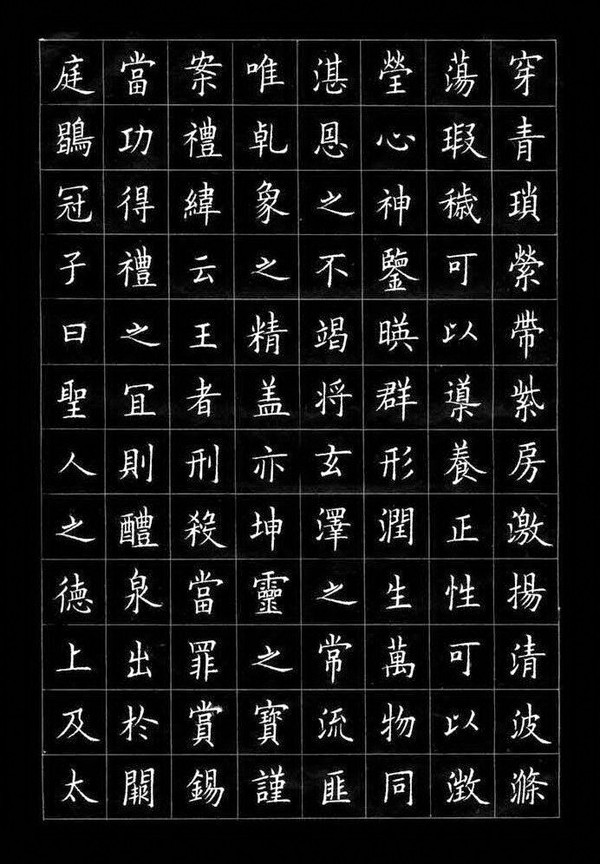 穿青瑣縈帶紫房激揚清波滌
蕩瑕穢可以導養正性可以澂
瑩心神鑒暎群形潤生萬物同
湛恩之不竭将玄澤之常流匪
唯乹象之精盖亦坤靈之寶謹
案禮緯云王者刑殺當罪賞錫
當功得禮之冝則醴泉出於闕
庭鶡冠子曰聖人之德上及太